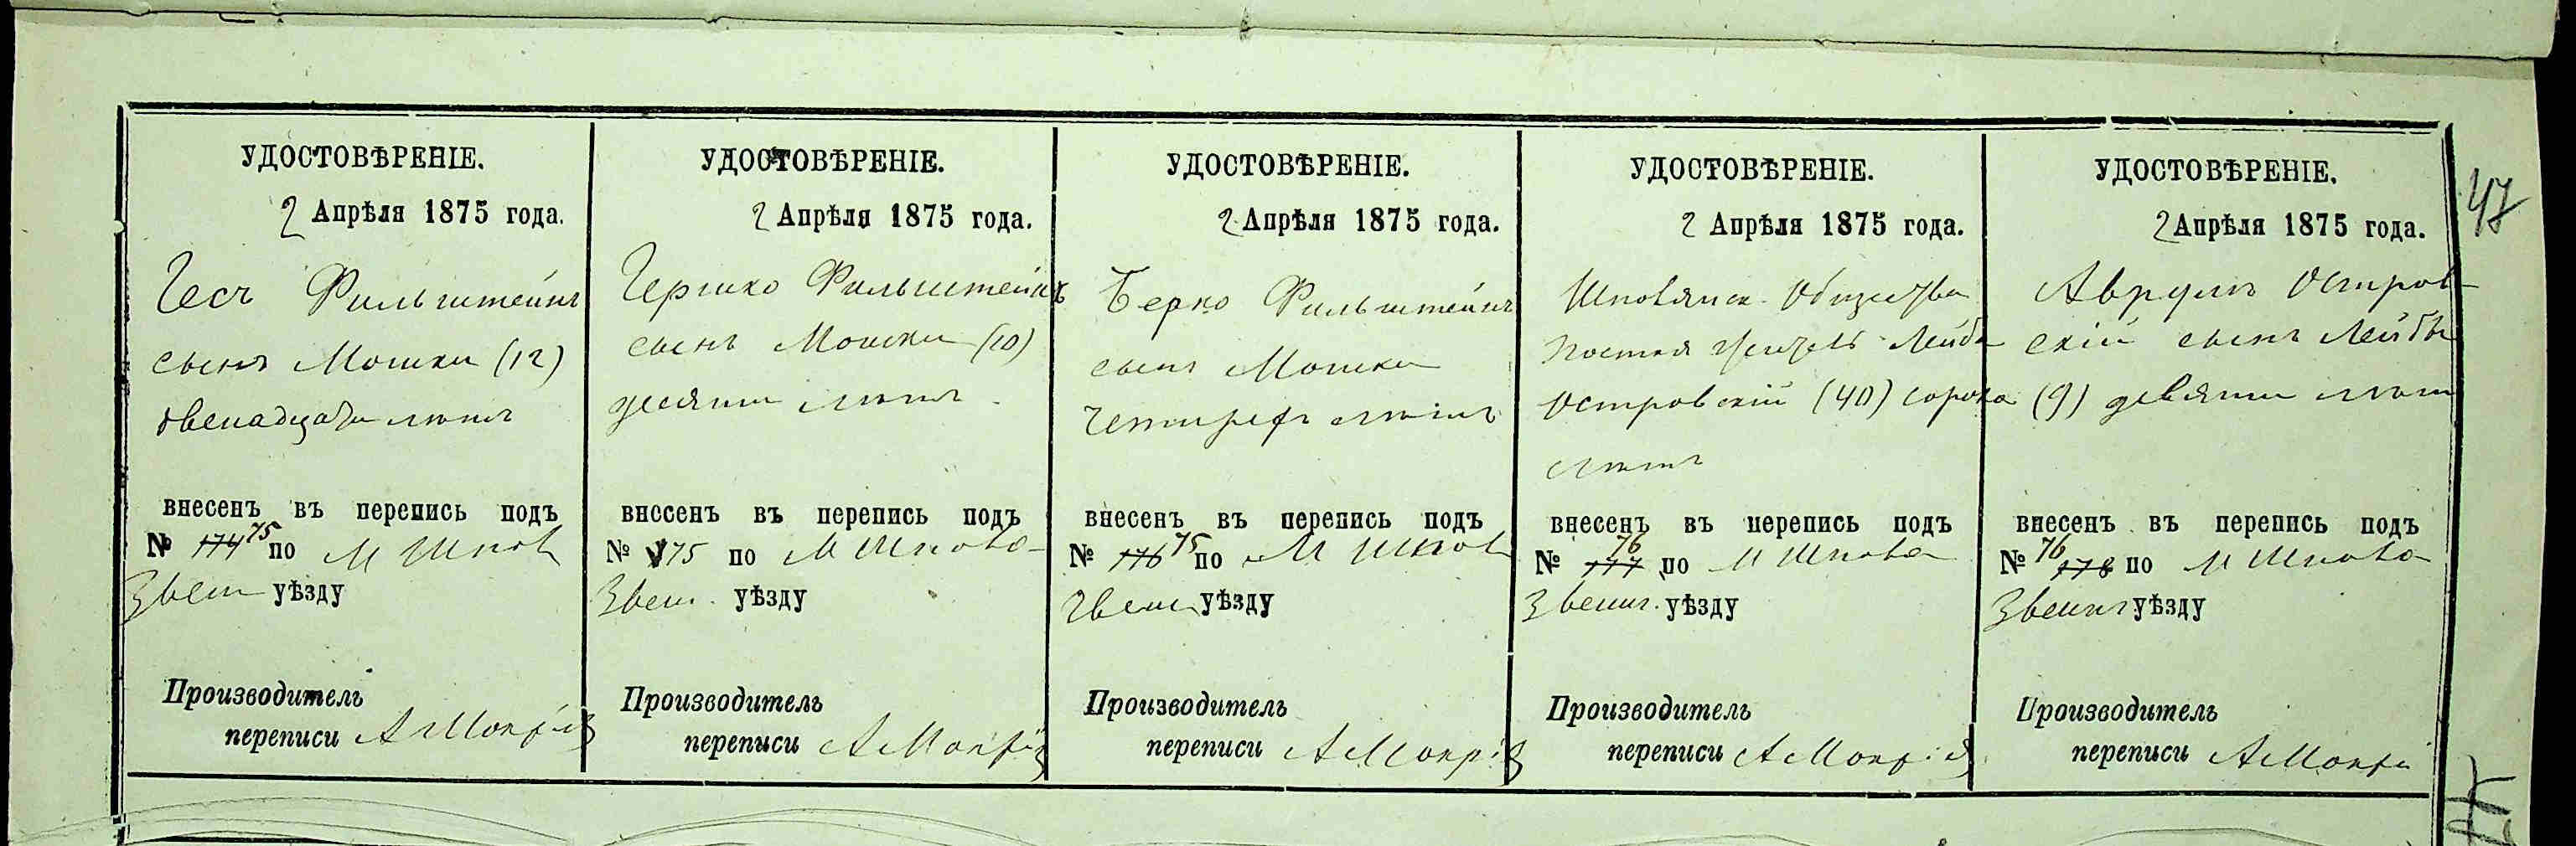 47
УДОСТОВѢРЕНІЕ.
2 Апрѣля 1875 года.
Гесъ Фильштейнъ
сынъ Мошки (12)
двенадцати лѣтъ
внесенъ въ перепись подъ
№ 174 75 по М Шпов
Звен уѣзду
Производитель
переписи А Мокрі
УДОСТОВѢРЕНІЕ.
2 Апрѣля 1875 года.
Гершко Фильштейнъ
сынъ Мошки (10)
десяти лѣтъ.
внесенъ въ перепись подъ
№ 175 по М Шпова
Звен. уѣзду
Производитель
переписи А Мокрі
УДОСТОВѢРЕНІЕ.
2 Апрѣля 1875 года.
Берко Фильштейнъ
сынъ Мошки
четырехъ лѣтъ
внесенъ въ перепись подъ
№ 176 75 по М Шпов
Звен уѣзду
Производитель
переписи А Мокрі
УДОСТОВѢРЕНІЕ.
2 Апрѣля 1875 года.
Шполянск. Общества
Лейба
Островскій (40) сорока
лѣтъ
внесенъ въ перепись подъ
№ 177 76 по М Шпова
Звениг. уѣзду
Производитель
переписи А Мокрі
УДОСТОВѢРЕНІЕ.
2 Апрѣля 1875 года.
Аврумъ Остров-
скій сынъ Лейбы
(9) девяти лѣтъ
внесенъ въ перепись подъ
№ 76 178 по М Шпова
Звениг уѣзду
Производитель
переписи А Мокрі